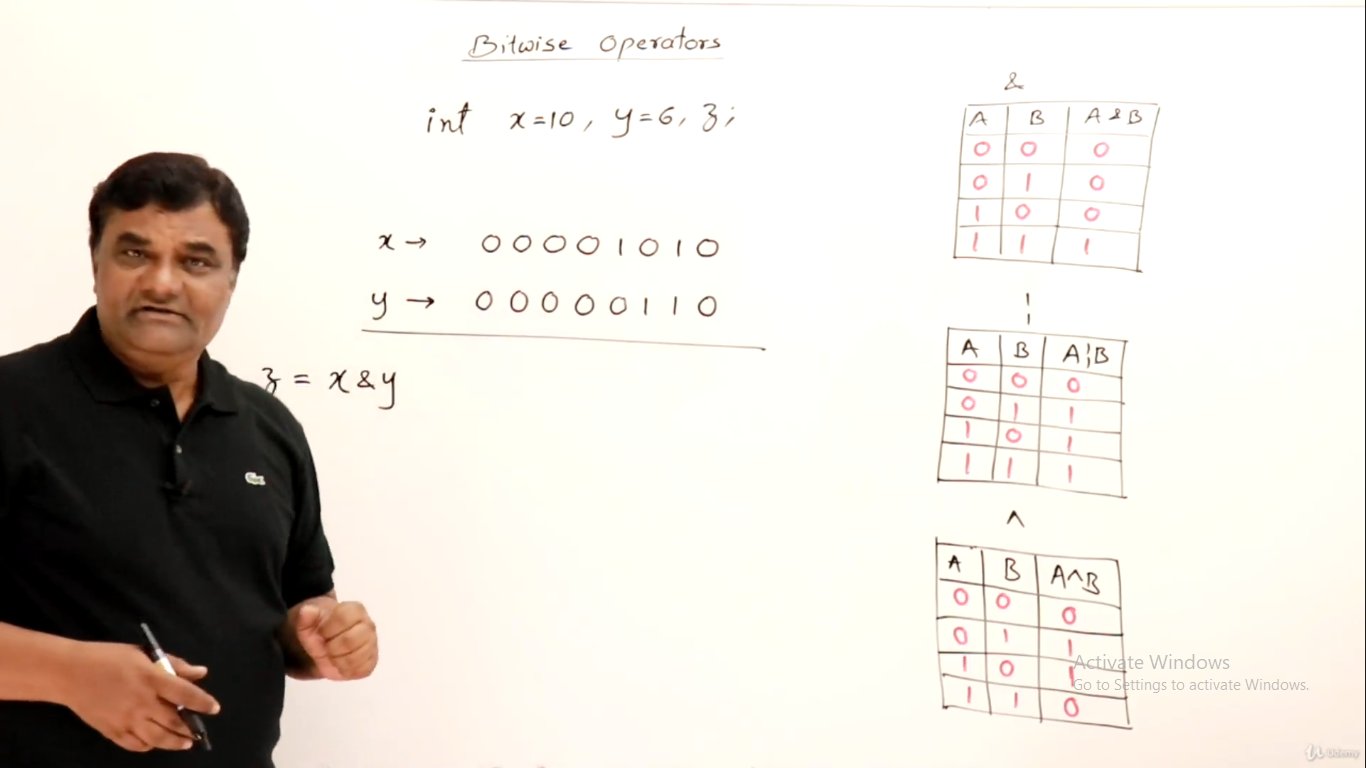 Bitwise Operators
int x=10, y=6, z;
x → 0 0 0 0 1 0 1 0
y → 0 0 0 0 0 1 1 0
z = x & y
&
A B A & B
0 0 0
0 1 0
1 0 0
1 1 1
¦
A B A¦B
0 0 0
0 1 1
1 0 1
1 1 1
^
A B A^B
0 0 0
0 1 1
1 0 1
1 1 0
Activate Windows
Go to Settings to activate Windows.
Udemy